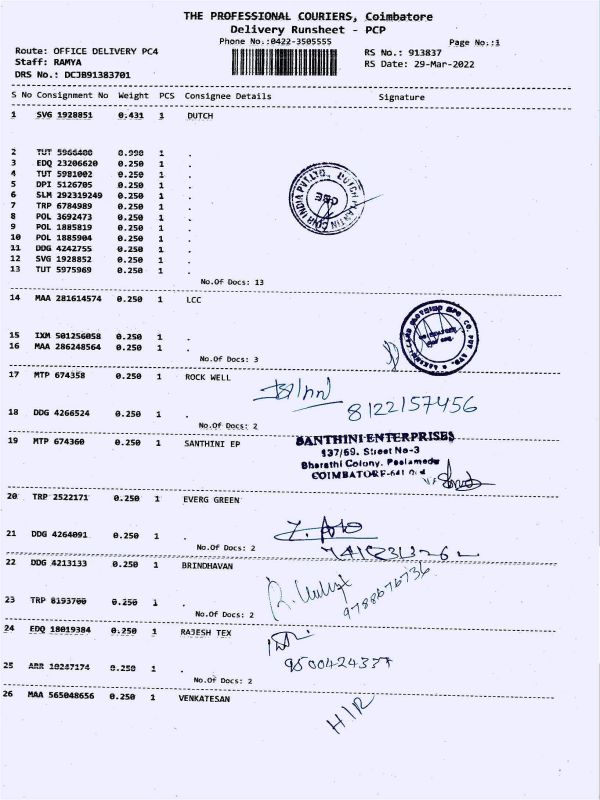 THE PROFESSIONAL COURIERS, Coimbatore
Delivery Runsheet - PCP
Phone No.:0422-3505555 Page No.:1
Route: OFFICE DELIVERY PC4 RS No.: 913837
Staff: RAMYA RS Date: 29-Mar-2022
DRS No.: DCJB91383701
S No Consignment No Weight PCS Consignee Details Signature
1 SVG 1928851 0.431 1 DUTCH
2 TUT 5966400 0.990 1 .
3 EDQ 23206620 0.250 1 .
4 TUT 5981002 0.250 1 .
5 DPI 5126705 0.250 1 .
6 SLM 292319249 0.250 1 .
7 TRP 6784989 0.250 1 .
8 POL 3692473 0.250 1 .
9 POL 1885819 0.250 1 .
10 POL 1885904 0.250 1 .
11 DDG 4242755 0.250 1 .
12 SVG 1928852 0.250 1 .
13 TUT 5975969 0.250 1 .
No.Of Docs: 13
14 MAA 281614574 0.250 1 LCC
15 IXM 501256058 0.250 1 .
16 MAA 286248564 0.250 1 .
No.Of Docs: 3
17 MTP 674358 0.250 1 ROCK WELL
8122157456
18 DDG 4266524 0.250 1 .
No.Of Docs: 2
19 MTP 674360 0.250 1 SANTHINI EP
SANTHINI ENTERPRISES
137/69. Street No-3
Bharathi Colony, Peelamedu
COIMBATORE-641
20 TRP 2522171 0.250 1 EVERG GREEN
21 DDG 4264091 0.250 1 .
No.Of Docs: 2
22 DDG 4213133 0.250 1 BRINDHAVAN
9788676736
23 TRP 8193700 0.250 1 .
No.Of Docs: 2
24 EDQ 18019384 0.250 1 RAJESH TEX
9500424337
25 ARR 10247174 0.250 1 .
No.Of Docs: 2
26 MAA 565048656 0.250 1 VENKATESAN
H/R